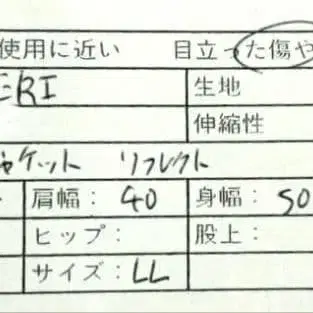 使用に近い 目立った傷や
ERI 生地
伸縮性
ャケット リフレクト
肩幅: 40 身幅: 50
ヒップ: 股上:
サイズ: LL